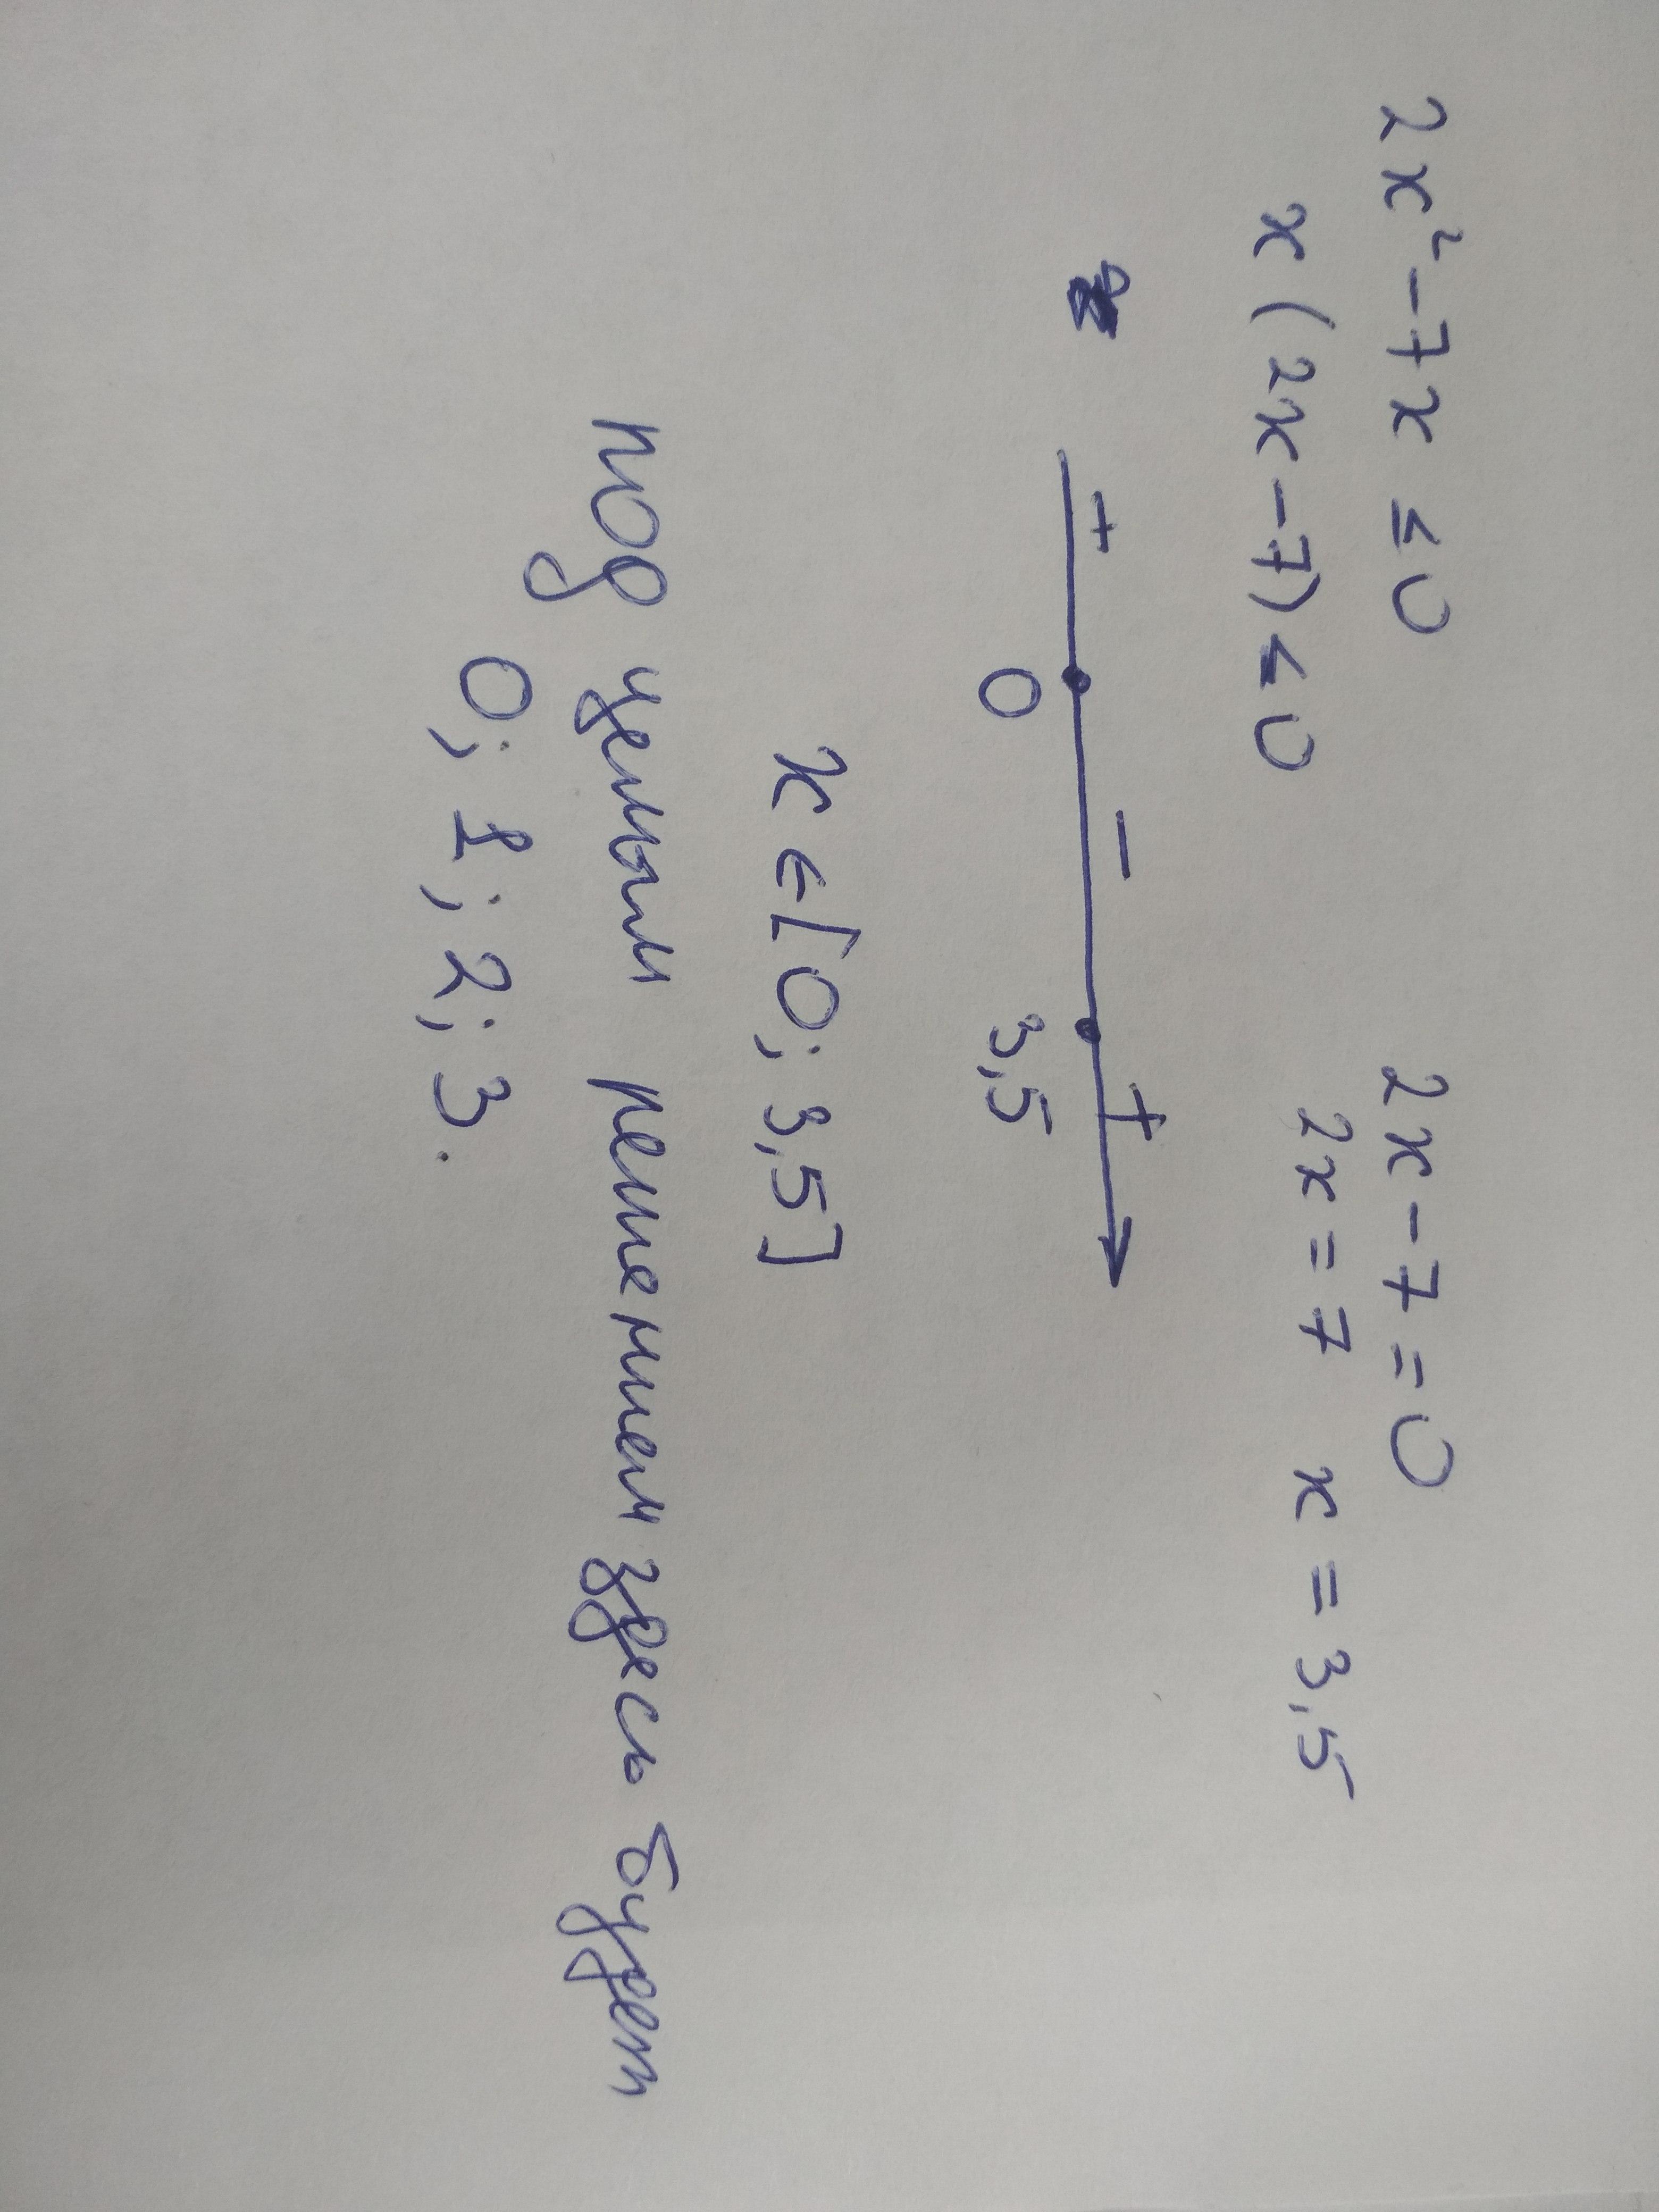 2x² - 7x ≤ 0
x(2x - 7) ≤ 0
2x - 7 = 0
2x = 7 x = 3,5
+ - +
0 3,5
x ∈ [0; 3,5]
под целым решением здесь будет
0; 1; 2; 3.